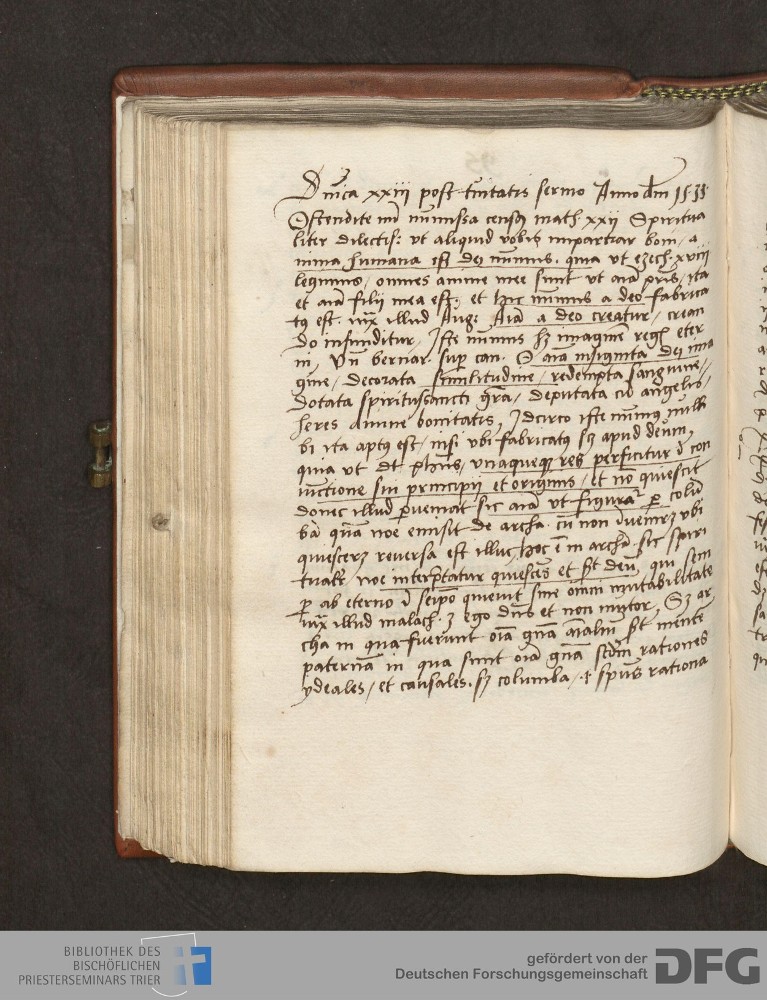 Dnica xxiii post tnitatis sermo Anno dm 1538
Ostendite mi numissa census math. xxij Spiritua
liter dilectis: ut aliquid vobis impartiar boni, a
nima humana est dei nummus. quia ut ezech. xviii
legimus, omnes anime mee sunt ut aia pris, ita
et aia filii mea est, et hic nummus a deo fabrica
tus est. iux illud Aug: Aia a deo creatur, crean
do infunditur, Iste nummus hz imagine regis eter
ni, Un bernar. sup can. O aia insignita dei ima
gine, decorata similitudine, redempta sanguine,
dotata spiritussancti gra, deputata cu angelis,
heres divine bonitatis, Idcirco iste numus nulli
bi ita aptus est, nisi ubi fabricatus sz apud deum,
quia ut dt phus, unaqueque res perficitur i con
iunctione sui principii et originis, et no quiescit
donec illud perveniat sic aia ut figuratur p colu
ba qua noe emisit de archa. cu non invenirz ubi
quiescerz reversa est illuc, hoc e in archa. sic spiri
tualr noe interptatur quiescens et st deu, qui sem
p ab eterno i seipo quievit sine omni mutabilitate
iux illud malach. 3 ego dns et non mutor, Sz ar
cha in qua fuerunt oia gna aialiu st mente
paterna in qua sunt oia gna sedm rationes
ydeales, et causales. sz columba, .i. spus rationa
BIBLIOTHEK DES
BISCHÖFLICHEN
PRIESTERSEMINARS TRIER
gefördert von der
Deutschen Forschungsgemeinschaft DFG